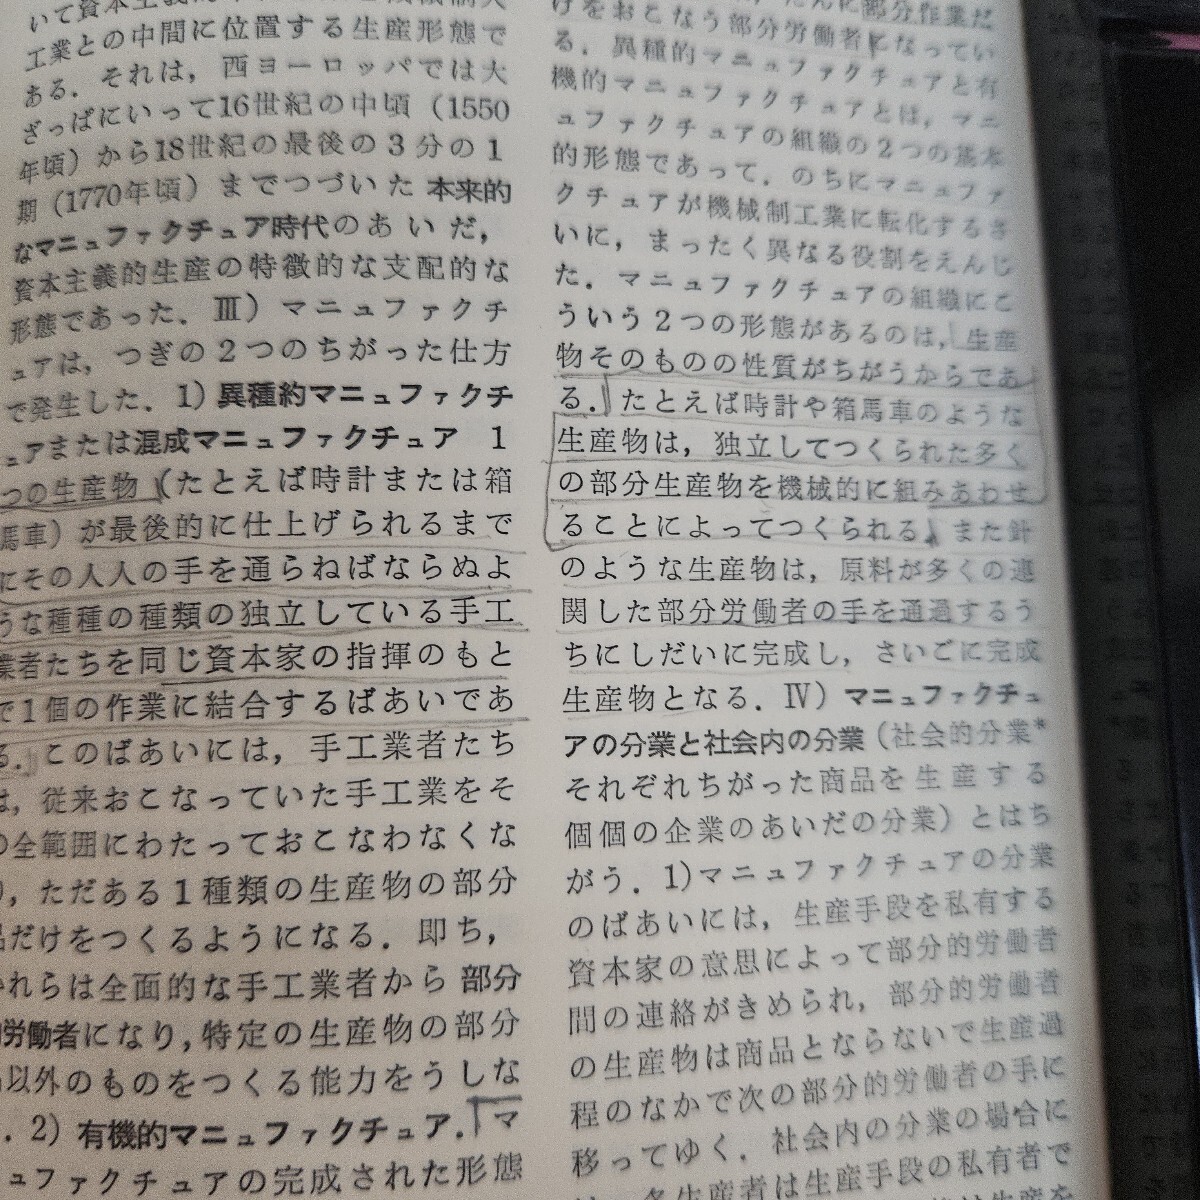 工業との中間に位置する生産形態で
ある．それは，西ヨーロッパでは大
ざっぱにいって16世紀の中頃（1550
年頃）から18世紀の最後の3分の1
期（1770年頃）までつづいた本来的
なマニュファクチュア時代のあいだ，
資本主義的生産の特徴的な支配的な
形態であった．Ⅲ）マニュファクチ
ュアは，つぎの2つのちがった仕方
で発生した．1）異種約マニュファクチ
ュアまたは混成マニュファクチュア 1
つの生産物（たとえば時計または箱
馬車）が最後的に仕上げられるまで
にその人人の手を通らねばならぬよ
うな種種の種類の独立している手工
業者たちを同じ資本家の指揮のもと
で1個の作業に結合するばあいであ
る．このばあいには，手工業者たち
は，従来おこなっていた手工業をそ
の全範囲にわたっておこなわなくな
り，ただある1種類の生産物の部分
品だけをつくるようになる．即ち，
かれらは全面的な手工業者から部分
的労働者になり，特定の生産物の部分
品以外のものをつくる能力をうしな
．2）有機的マニュファクチュア．マ
ュファクチュアの完成された形態
けをおこなう部分労働者になってい
る．異種的マニュファクチュアと有
機的マニュファクチュアとは，マニ
ュファクチュアの組織の2つの基本
的形態であって．のちにマニュファ
クチュアが機械制工業に転化するさ
いに，まったく異なる役割をえんじ
た．マニュファクチュアの組織にこ
ういう2つの形態があるのは，生産
物そのものの性質がちがうからであ
る．たとえば時計や箱馬車のような
生産物は，独立してつくられた多く
の部分生産物を機械的に組みあわせ
ることによってつくられる．また針
のような生産物は，原料が多くの連
関した部分労働者の手を通過するう
ちにしだいに完成し，さいごに完成
生産物となる．Ⅳ）マニュファクチュ
アの分業と社会内の分業（社会的分業*
それぞれちがった商品を生産する
個個の企業のあいだの分業）とはち
がう．1）マニュファクチュアの分業
のばあいには，生産手段を私有する
資本家の意思によって部分的労働者
間の連絡がきめられ，部分的労働者
の生産物は商品とならないで生産過
程のなかで次の部分的労働者の手に
移ってゆく．社会内の分業の場合に
は，各生産者は生産手段の私有者で